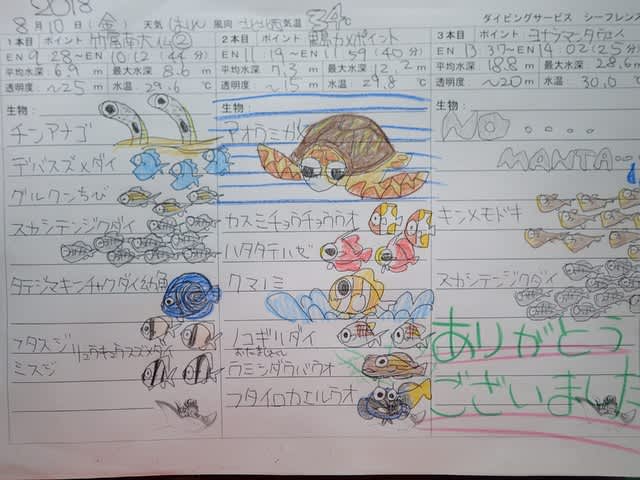 2018
8月10日(金) 天気 はれ 風向 気温 34℃ ダイビングサービス シーフレンド
1本目 ポイント 竹富南大仏②
EN 9:28〜EN 10:12(44分)
平均水深 6.9 m 最大水深 8.6 m
透明度 〜25 m 水温 29.6 ℃
生物:
チンアナゴ
デバスズメダイ
グルクンちび
スカシテンジクダイ
タテジマキンチャクダイ幼魚
フタスジ
リュウキュウスズメダイ
ミスジ
2本目 ポイント カメポイント
EN 11:19〜EN 11:59(40分)
平均水深 7.3 m 最大水深 12.2 m
透明度 〜15 m 水温 29.8 ℃
生物:
アオウミガメ
カスミチョウチョウウオ
ハタタテハゼ
クマノミ
ノコギリダイ
おたまじゃくし
ウミンダ
フタイロカエルウオ
3本目 ポイント ヨナラマンタウェイ
EN 13:37〜EN 14:02(25分)
平均水深 18.8 m 最大水深 28.6 m
透明度 〜20 m 水温 30.0
生物:
NO....
MANTA...
キンメモドキ
スカシテンジクダイ
ありがとう
ございました